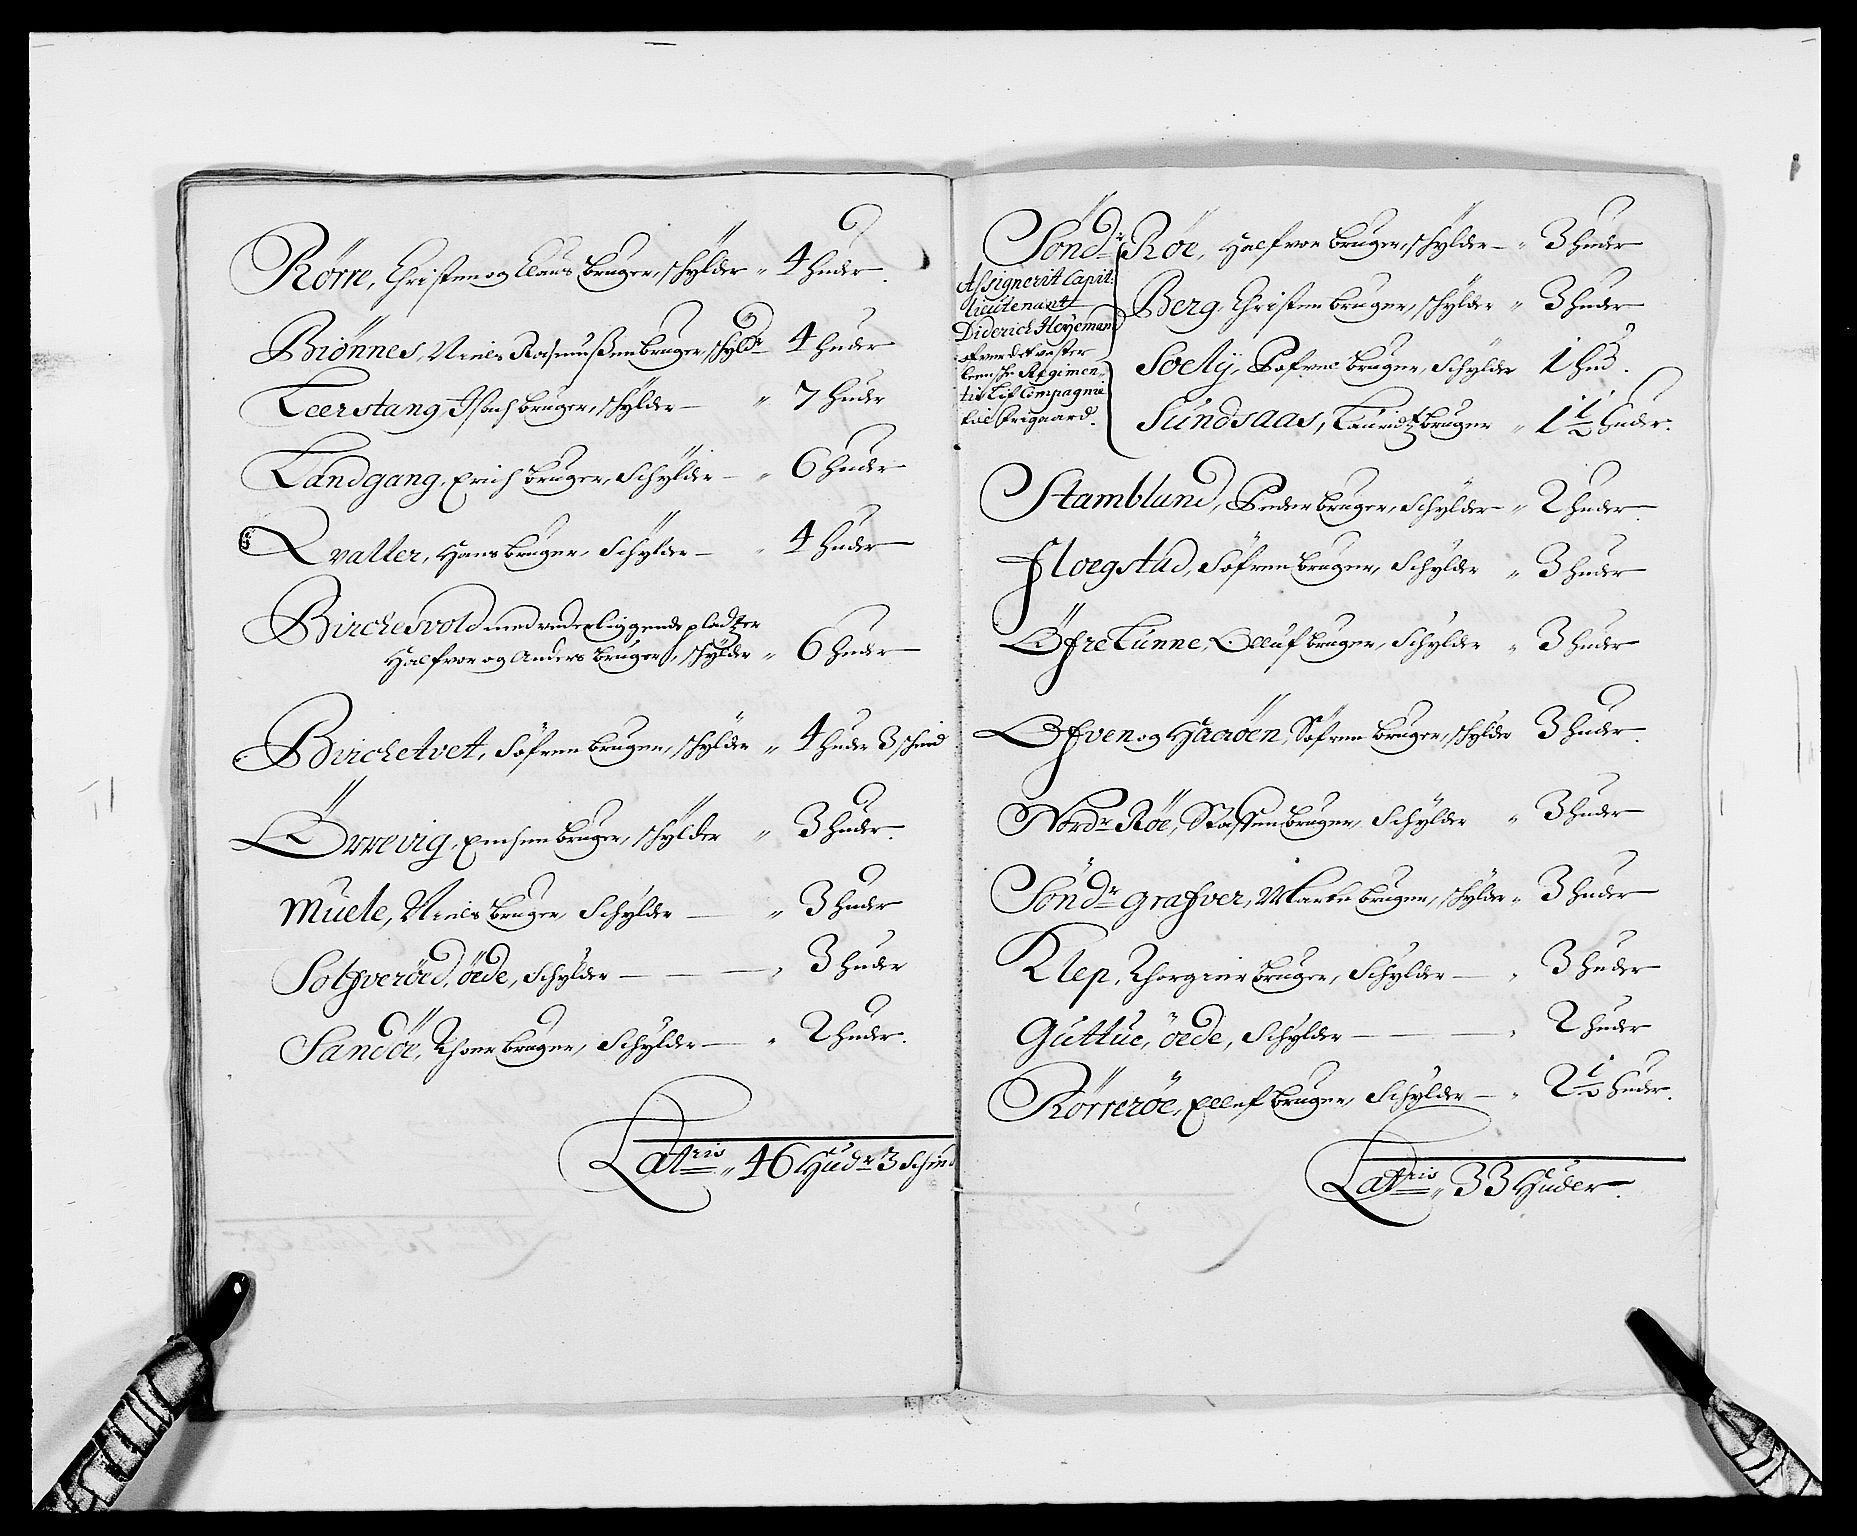 Rørre, Christen og Claus bruger, schÿlder „ 4 huder.
Biönnes, Niels Rasmußen bruger, schÿldr 4 huder
Leerstang, Isach bruger, schÿlder — „ 7 huder
Landgang, Erich bruger, Schÿlder — „ 6 huder
Qvaller, Hans bruger, Schÿlder — „ 4 huder
Birchesvold med underliggende pladtzer
Halfvor og Anders bruger, schÿlder „ 6 huder
Birchetvet, Söfren bruger, schÿlder „ 4 huder 3 schind
Örrevig, bruger, schÿlder „ 3 huder.
Muele, Niels bruger, Schÿlder — „ 3 huder
Solfveröed, öede, Schÿlder — — — „ 3 huder
Sandöe, Thoer bruger, Schÿlder — „ 2 huder.
Latris „ 46 Hudr 3 Schind
Söndr Röe, Halfvor bruger, schÿlder — „ 3 huder
Assignerit Capit:
lieutenant
Diderich Heyeman
af
Regimen-
tis Lif Compagnie
til Frigaard.
Berg, Christen bruger, schÿlder „ 3 huder
Soelÿ, Söfren bruger, Schÿlder 1 hud.
Sundsaas, Lauridtz bruger „ 1½ huder.
Stamblund, Peder bruger, Schÿlder — „ 2 huder.
Floegstad, Söfren bruger, Schÿlder „ 3 huder
Öfre Lunne, Olluf bruger, Schÿlder „ 3 huder
Öfven og Haeröen, Söfren bruger, schÿlder 3 huder.
Nordr Röe, Staffen bruger, Schÿlder „ 3 huder
Söndr grafver, Marte bruger, schÿlder „ 3 huder
Klep, Thorgier bruger, Schÿlder — „ 3 huder
Guttue, öede, Schÿlder — — — „ 2 huder
Rörreröe, Ellef bruger, Schÿlder — „ 2½ huder.
Latris „ 33 Huder.